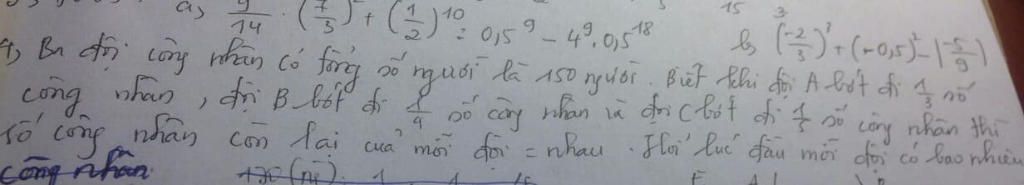 a) 9/14 . (7/3) + (1/2)^10 : 0,5^9 - 4^9 . 0,5^18
15 3
b) (-2/3)^3 + (-0,5)^2 - |-5/9|
4) Ba đội công nhân có tổng số người là 150 người. Biết khi đội A bớt đi 1/3 số
công nhân, đội B bớt đi 1/4 số công nhân và đội C bớt đi 1/5 số công nhân thì
số công nhân còn lại của mỗi đội = nhau. Hỏi lúc đầu mỗi đội có bao nhiêu
công nhân